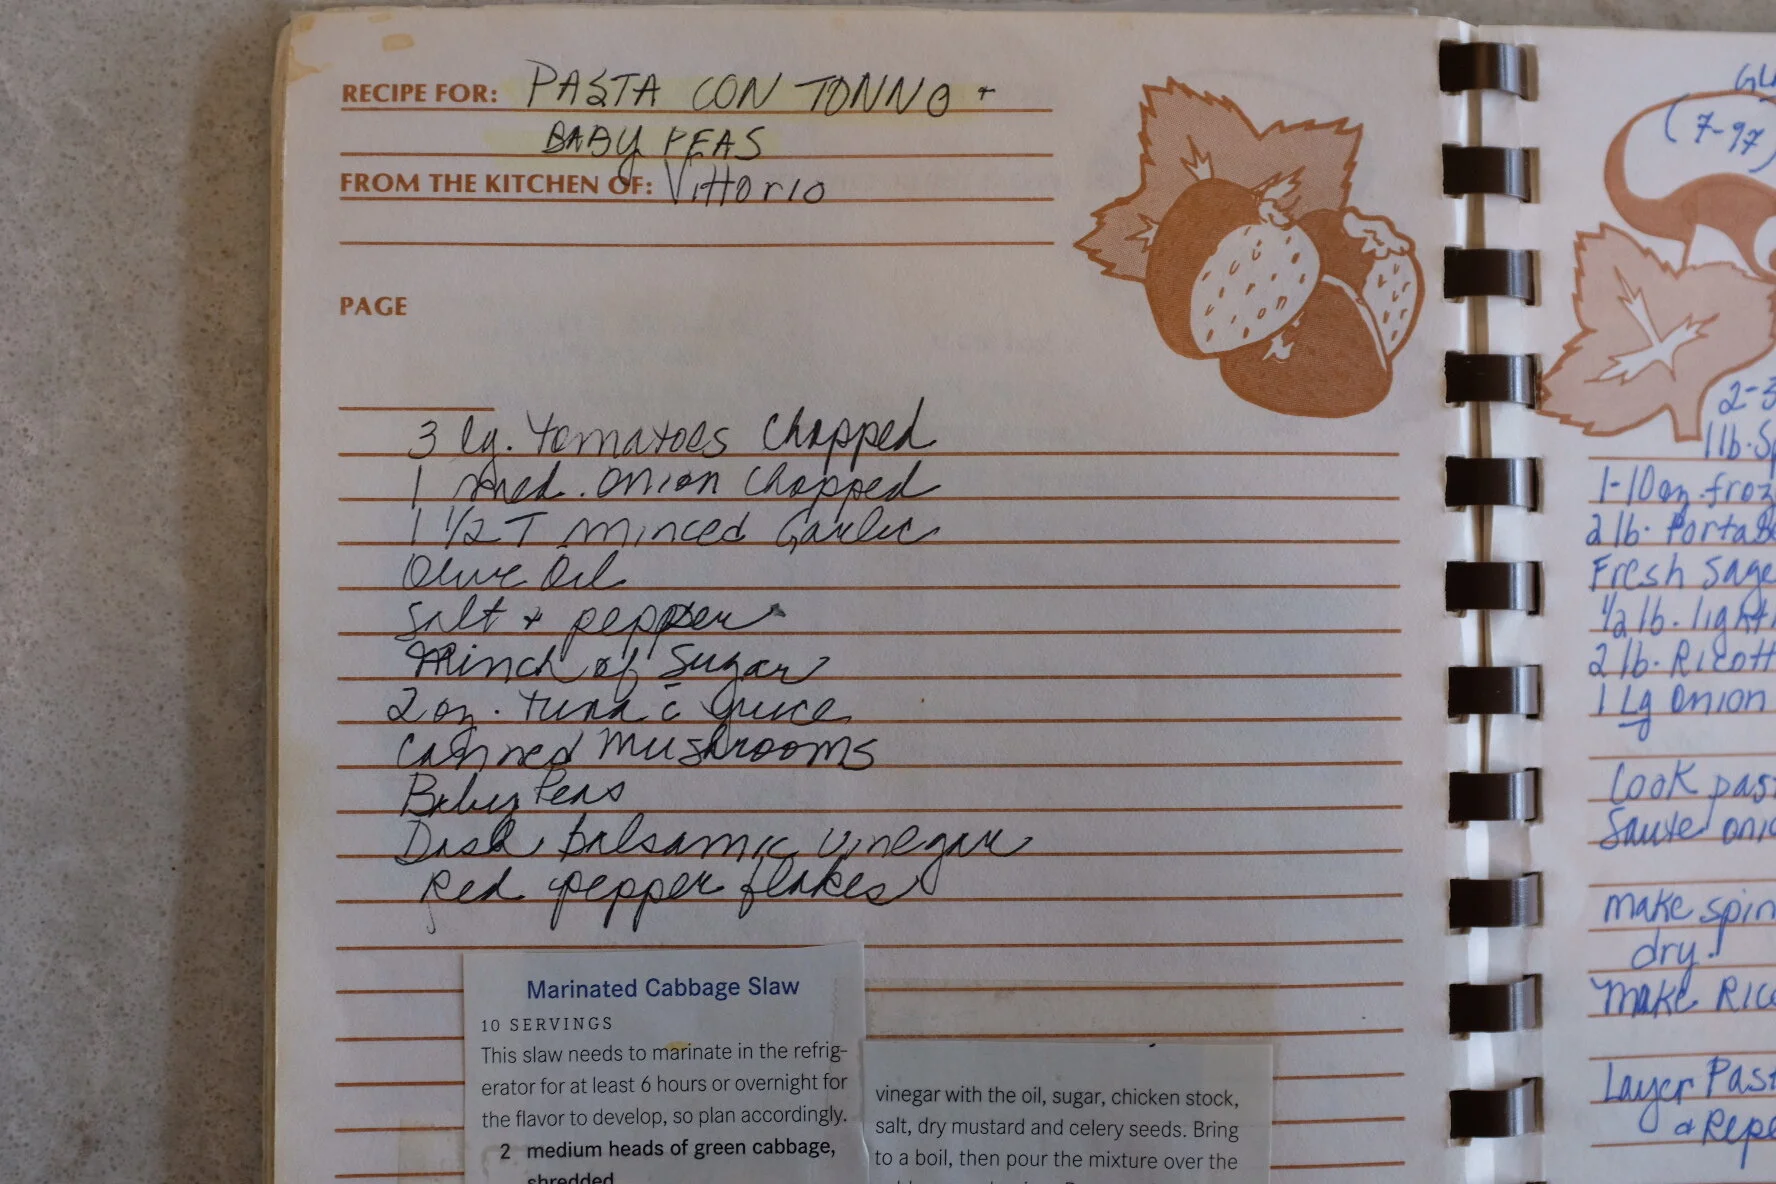 RECIPE FOR: PASTA CON TONNO +
BABY PEAS
FROM THE KITCHEN OF: Vittorio
PAGE
3 lg. Tomatoes Chopped
1 med. onion chopped
1 1/2 T minced Garlic
Olive Oil
Salt + pepper
of Sugar
2 oz. Tuna c̄ Juice
Canned Mushrooms
Baby Peas
Dash balsamic vinegar
Red pepper flakes
Marinated Cabbage Slaw
10 SERVINGS
This slaw needs to marinate in the refrig-
erator for at least 6 hours or overnight for
the flavor to develop, so plan accordingly.
2 medium heads of green cabbage,
shredded
vinegar with the oil, sugar, chicken stock,
salt, dry mustard and celery seeds. Bring
to a boil, then pour the mixture over the
(7-97)
2-3
1 lb. Sp
1-10 oz. froz
2 lb. Portab
Fresh Sage
1/2 lb. light
2 lb. Ricott
1 Lg Onion
Cook past
Saute onio
make spin
dry.
Make Rico
Layer Past
& Repe